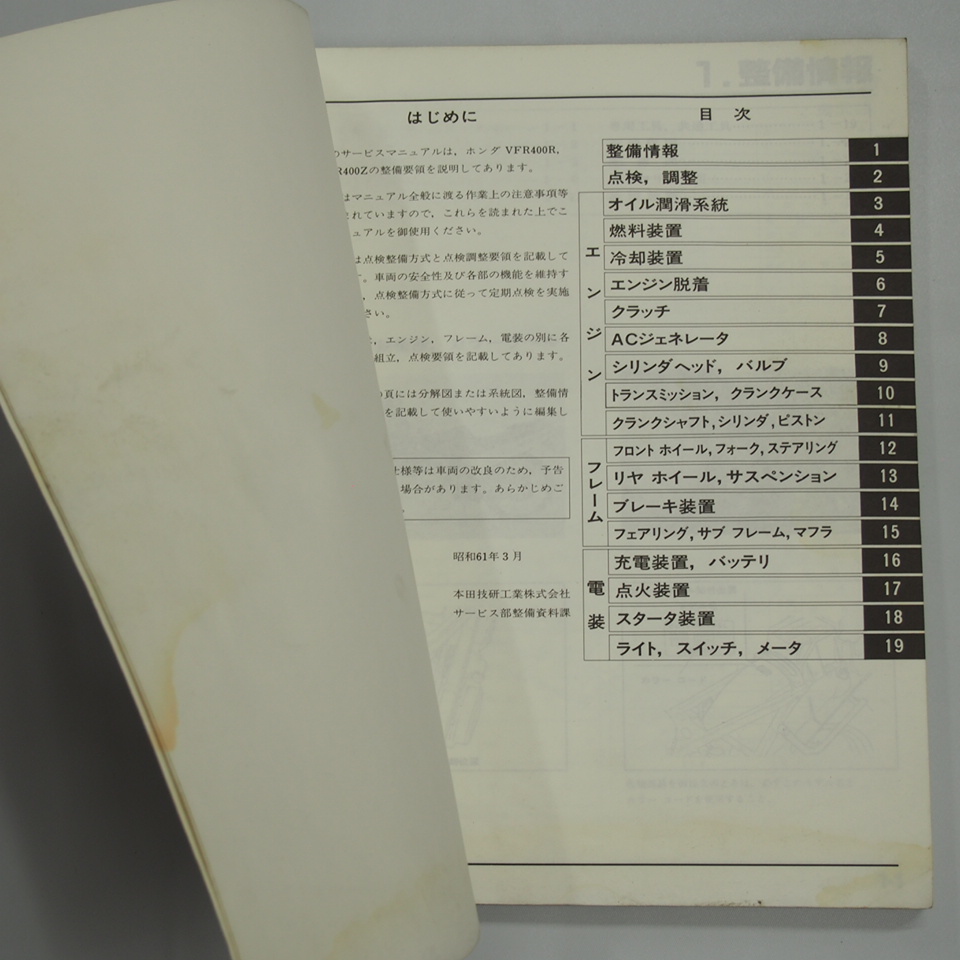 はじめに
のサービスマニュアルは，ホンダ VFR400R，
R400Zの整備要領を説明してあります。
はマニュアル全般に渡る作業上の注意事項等
されていますので，これらを読まれた上でこ
ュアルを御使用ください。
は点検整備方式と点検調整要領を記載して
。車両の安全性及び各部の機能を維持す
，点検整備方式に従って定期点検を実施
さい。
，エンジン，フレーム，電装の別に各
組立，点検要領を記載してあります。
の頁には分解図または系統図，整備情
を記載して使いやすいように編集し
仕様等は車両の改良のため，予告
場合があります。あらかじめご
昭和61年3月
本田技研工業株式会社
サービス部整備資料課
目 次
整備情報 1
点検，調整 2
エンジン
オイル潤滑系統 3
燃料装置 4
冷却装置 5
エンジン脱着 6
クラッチ 7
ACジェネレータ 8
シリンダヘッド，バルブ 9
トランスミッション，クランクケース 10
クランクシャフト，シリンダ，ピストン 11
フレーム
フロント ホイール，フォーク，ステアリング 12
リヤ ホイール，サスペンション 13
ブレーキ装置 14
フェアリング，サブ フレーム，マフラ 15
電装
充電装置，バッテリ 16
点火装置 17
スタータ装置 18
ライト，スイッチ，メータ 19
1．整備情報